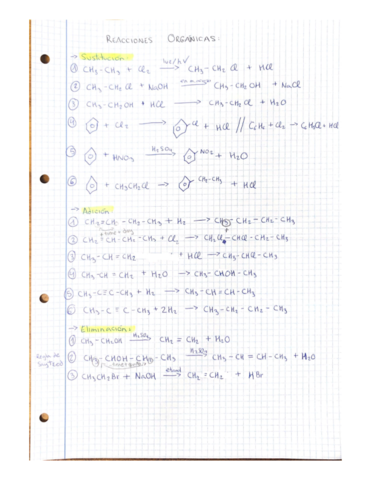 REACCIONES ORGANICAS.
→ Sustitución:
① CH3-CH3 + Cl2 → CH3-CH2Cl + HCl
② CH3-CH2Cl + NaOH → CH3-CH2OH + NaCl
③ CH3-CH2OH + HCl → CH3-CH2Cl + H2O
④ + Cl2 → Cl + HCl // C6H6 + Cl2 → C6H5Cl + HCl
⑤ + HNO3 H2SO4 → NO2 + H2O
⑥ + CH3CH2Cl → CH2-CH3 + HCl
→ Adición:
① CH2=CH-CH2-CH3 + H2 → CH3-CH2-CH2-CH3
② CH2=CH-CH2-CH3 + Cl2 → CH2Cl-CHCl-CH2-CH3
③ CH3-CH=CH2 + HCl → CH3-CHCl-CH3
④ CH3-CH=CH2 + H2O → CH3-CHOH-CH3
⑤ CH3-C≡C-CH3 + H2 → CH3-CH=CH-CH3
⑥ CH3-C≡C-CH3 + 2H2 → CH3-CH2-CH2-CH3
→ Eliminación:
① CH3-CH2OH H2SO4 → CH2=CH2 + H2O
② CH3-CHOH-CH2-CH3 H2SO4 → CH3-CH=CH-CH3 + H2O
Regla de Saytzeff
③ CH3CH2Br + NaOH etanol → CH2=CH2 + HBr